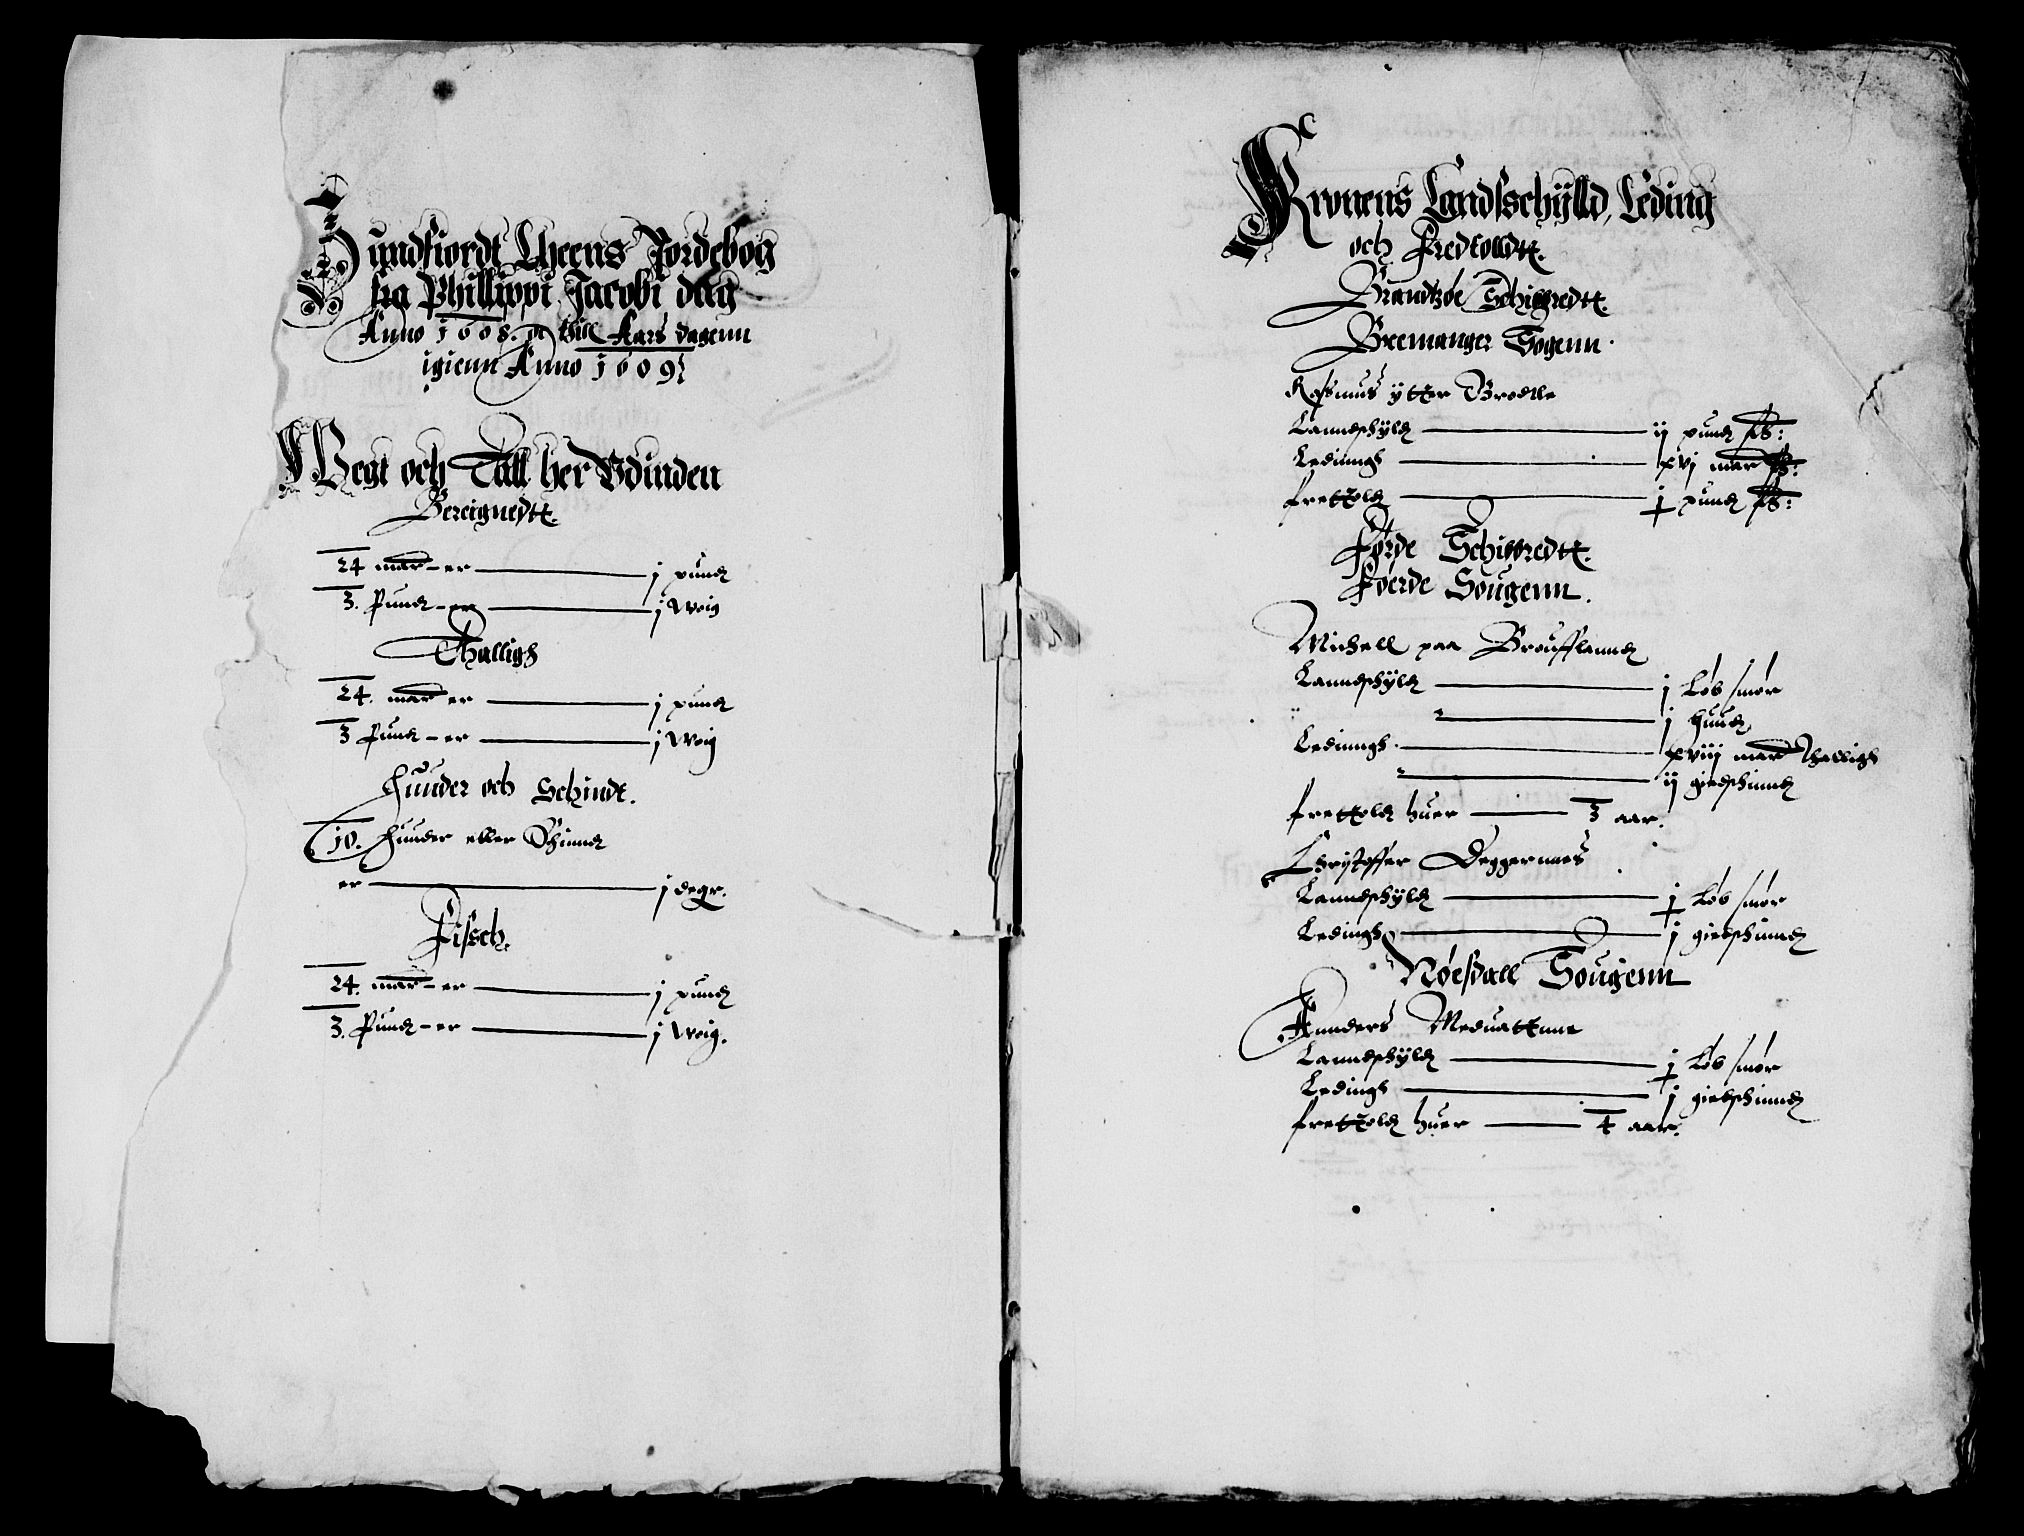 Sundfiordt Lheens Jordebog
fra Phillippi Jacobi dag
Anno 1608. oc thill Aars dagenn
igienn Anno 1609
Wegt och Tall her Vdinden
Bereignedtt.
24 mar-er j pund
3. Pund-er j Woig
Thalligh
24. mar er j pund
3 Pund-er j Woig
Huuder och Schindt.
10. Huuder eller Schinnd
er j degr.
Fissch.
24. mar-er j pund
3. Pund-er j Woig.
Kronens Landsschylld, Leding
och Fredtolldtt.
Brandzøe Schipredtt.
Bremanger Sogenn.
Rasmus ytter Broelle
Lanndschylld ij pund fs:
Ledinngh xvj mar fs:
frettold j pund fs:
Førde Schipredtt.
Føerde Sougenn.
Michell paa Broufflannd
Lanndschylld j Løb smør
" j Huud
Ledinngh. xviij mar Thalligh
" ij giedschinnd
frettold huer 3 aar.
Christoffer Deggernnes
Lanndschylld j Løb smør
Ledingh j giedschinnd
Nøesdall Sougenn
Annders Meduattnne
Lanndschylld j Løb smør
Ledingh j giedschinnd
frettold huer 4 aar.